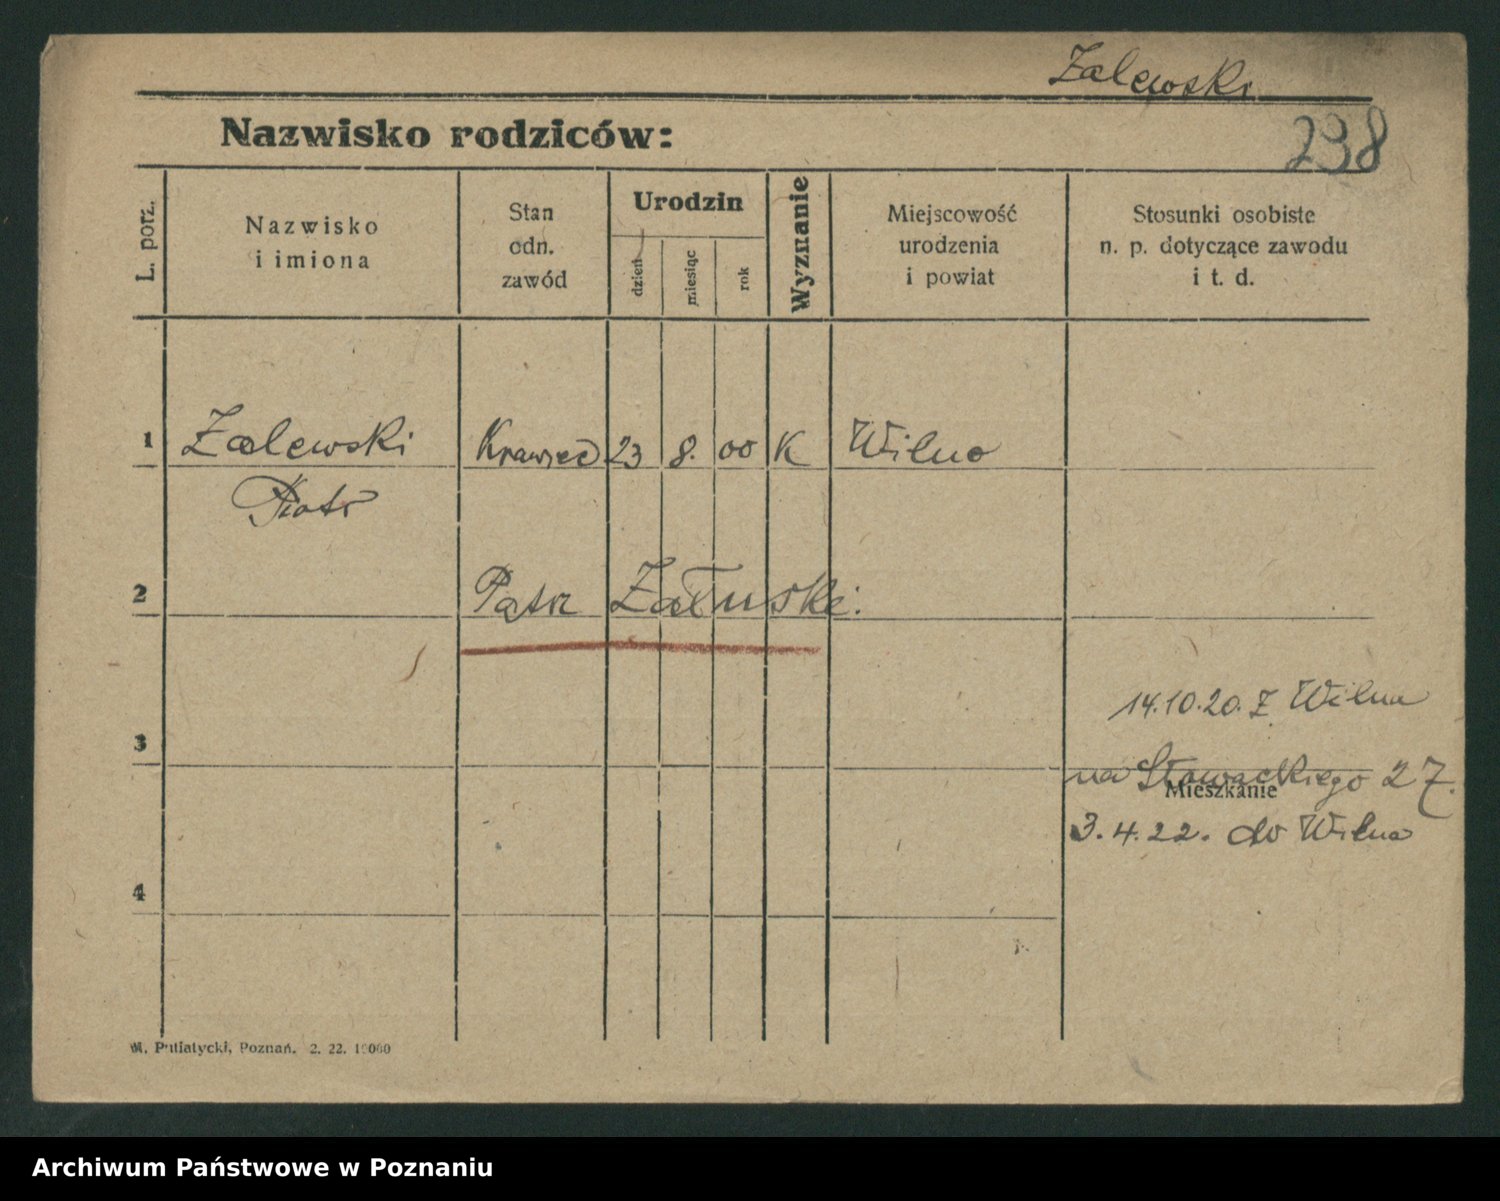 Zalewski
Nazwisko rodziców:
238
L. porz.
Nazwisko
i imiona
Stan
odn.
zawód
Urodzin
dzień
miesiąc
rok
Wyznanie
Miejscowość
urodzenia
i powiat
Stosunki osobiste
n. p. dotyczące zawodu
i t. d.
1 Zalewski Krawiec 23 8. 00 K Wilno
Piotr
2 Patrz Załuski.
14.10.20. z Wilna
3
na Słowackiego 27.
Mieszkanie
3.4.22. do Wilna
4
M. Putiatycki, Poznań. 2. 22. 10000
Archiwum Państwowe w Poznaniu